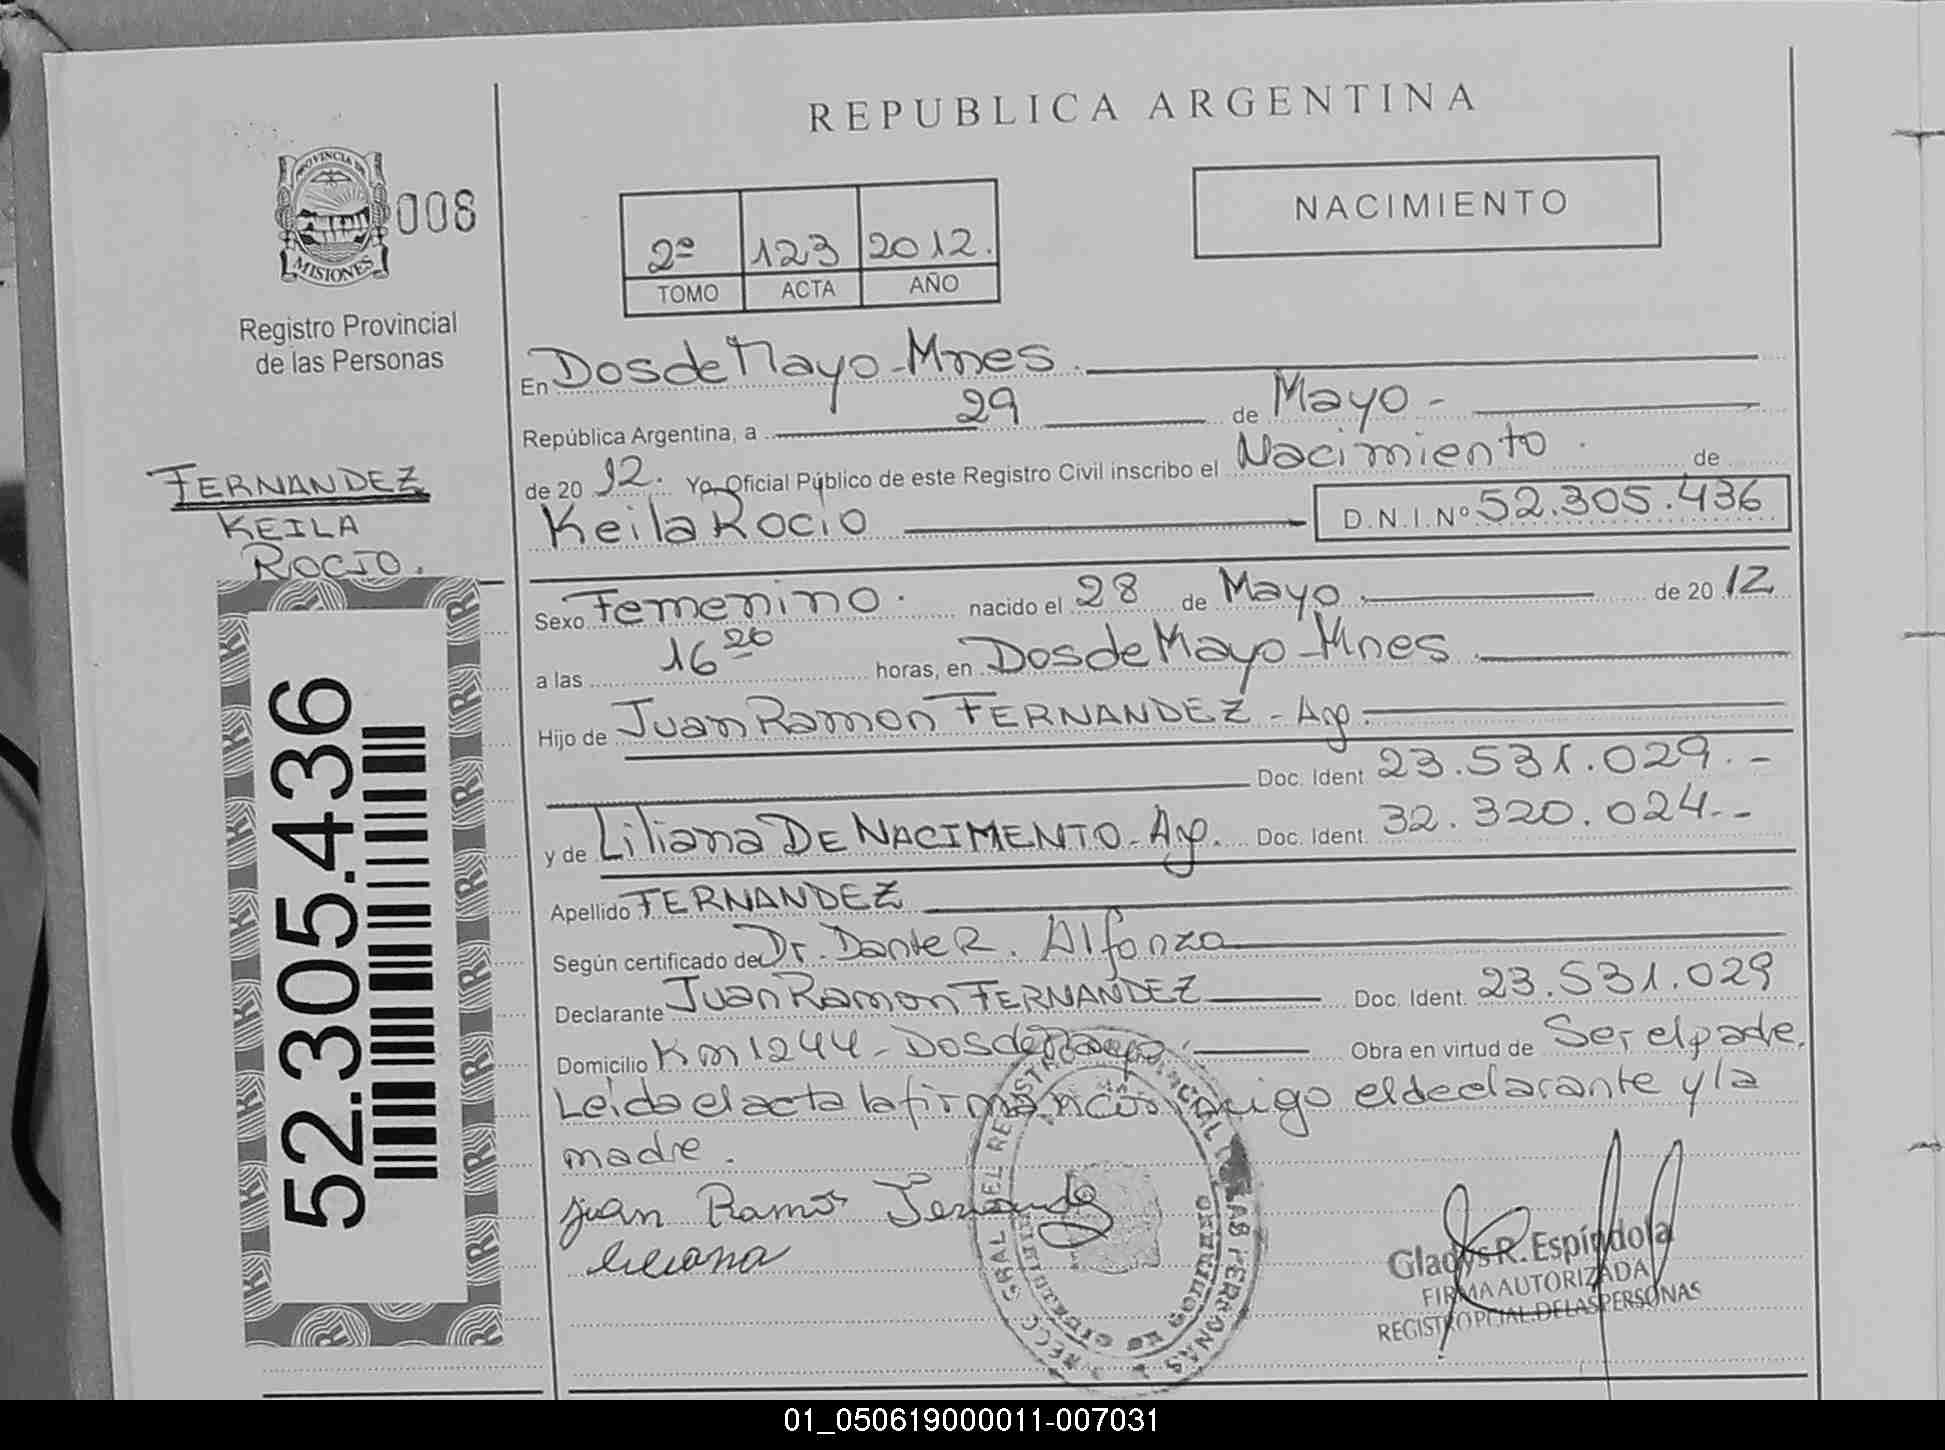 REPUBLICA ARGENTINA
PROVINCIA DE
MISIONES
008
NACIMIENTO
2º 123 2012.
TOMO ACTA AÑO
Registro Provincial
de las Personas
En Dos de Mayo - Mnes.
República Argentina, a 29 de Mayo -
de 20 12. Yo Oficial Público de este Registro Civil inscribo el Nacimiento. de
Keila Rocio D.N.I. Nº 52.305.436
FERNANDEZ
KEILA
ROCIO.
Sexo Femenino. nacido el 28 de Mayo. de 20 12
a las 16 20 horas, en Dos de Mayo - Mnes.
Hijo de Juan Ramon FERNANDEZ - Ag.
Doc. Ident. 23.531.029. -
y de Liliana DE NACIMENTO - Ag. Doc. Ident. 32.320.024 - -
Apellido FERNANDEZ
Según certificado de Dr. Dante R. Alfonzo
Declarante Juan Ramon FERNANDEZ Doc. Ident. 23.531.029
Domicilio Km 1244 - Dos de Mayo. Obra en virtud de Ser el padre.
Leida el acta la firman conmigo el declarante y la
madre.
Juan Ramon Fernandez
liliana
52.305.436
Gladys R. Espíndola
FIRMA AUTORIZADA
REGISTRO PCIAL. DE LAS PERSONAS
01_050619000011-007031